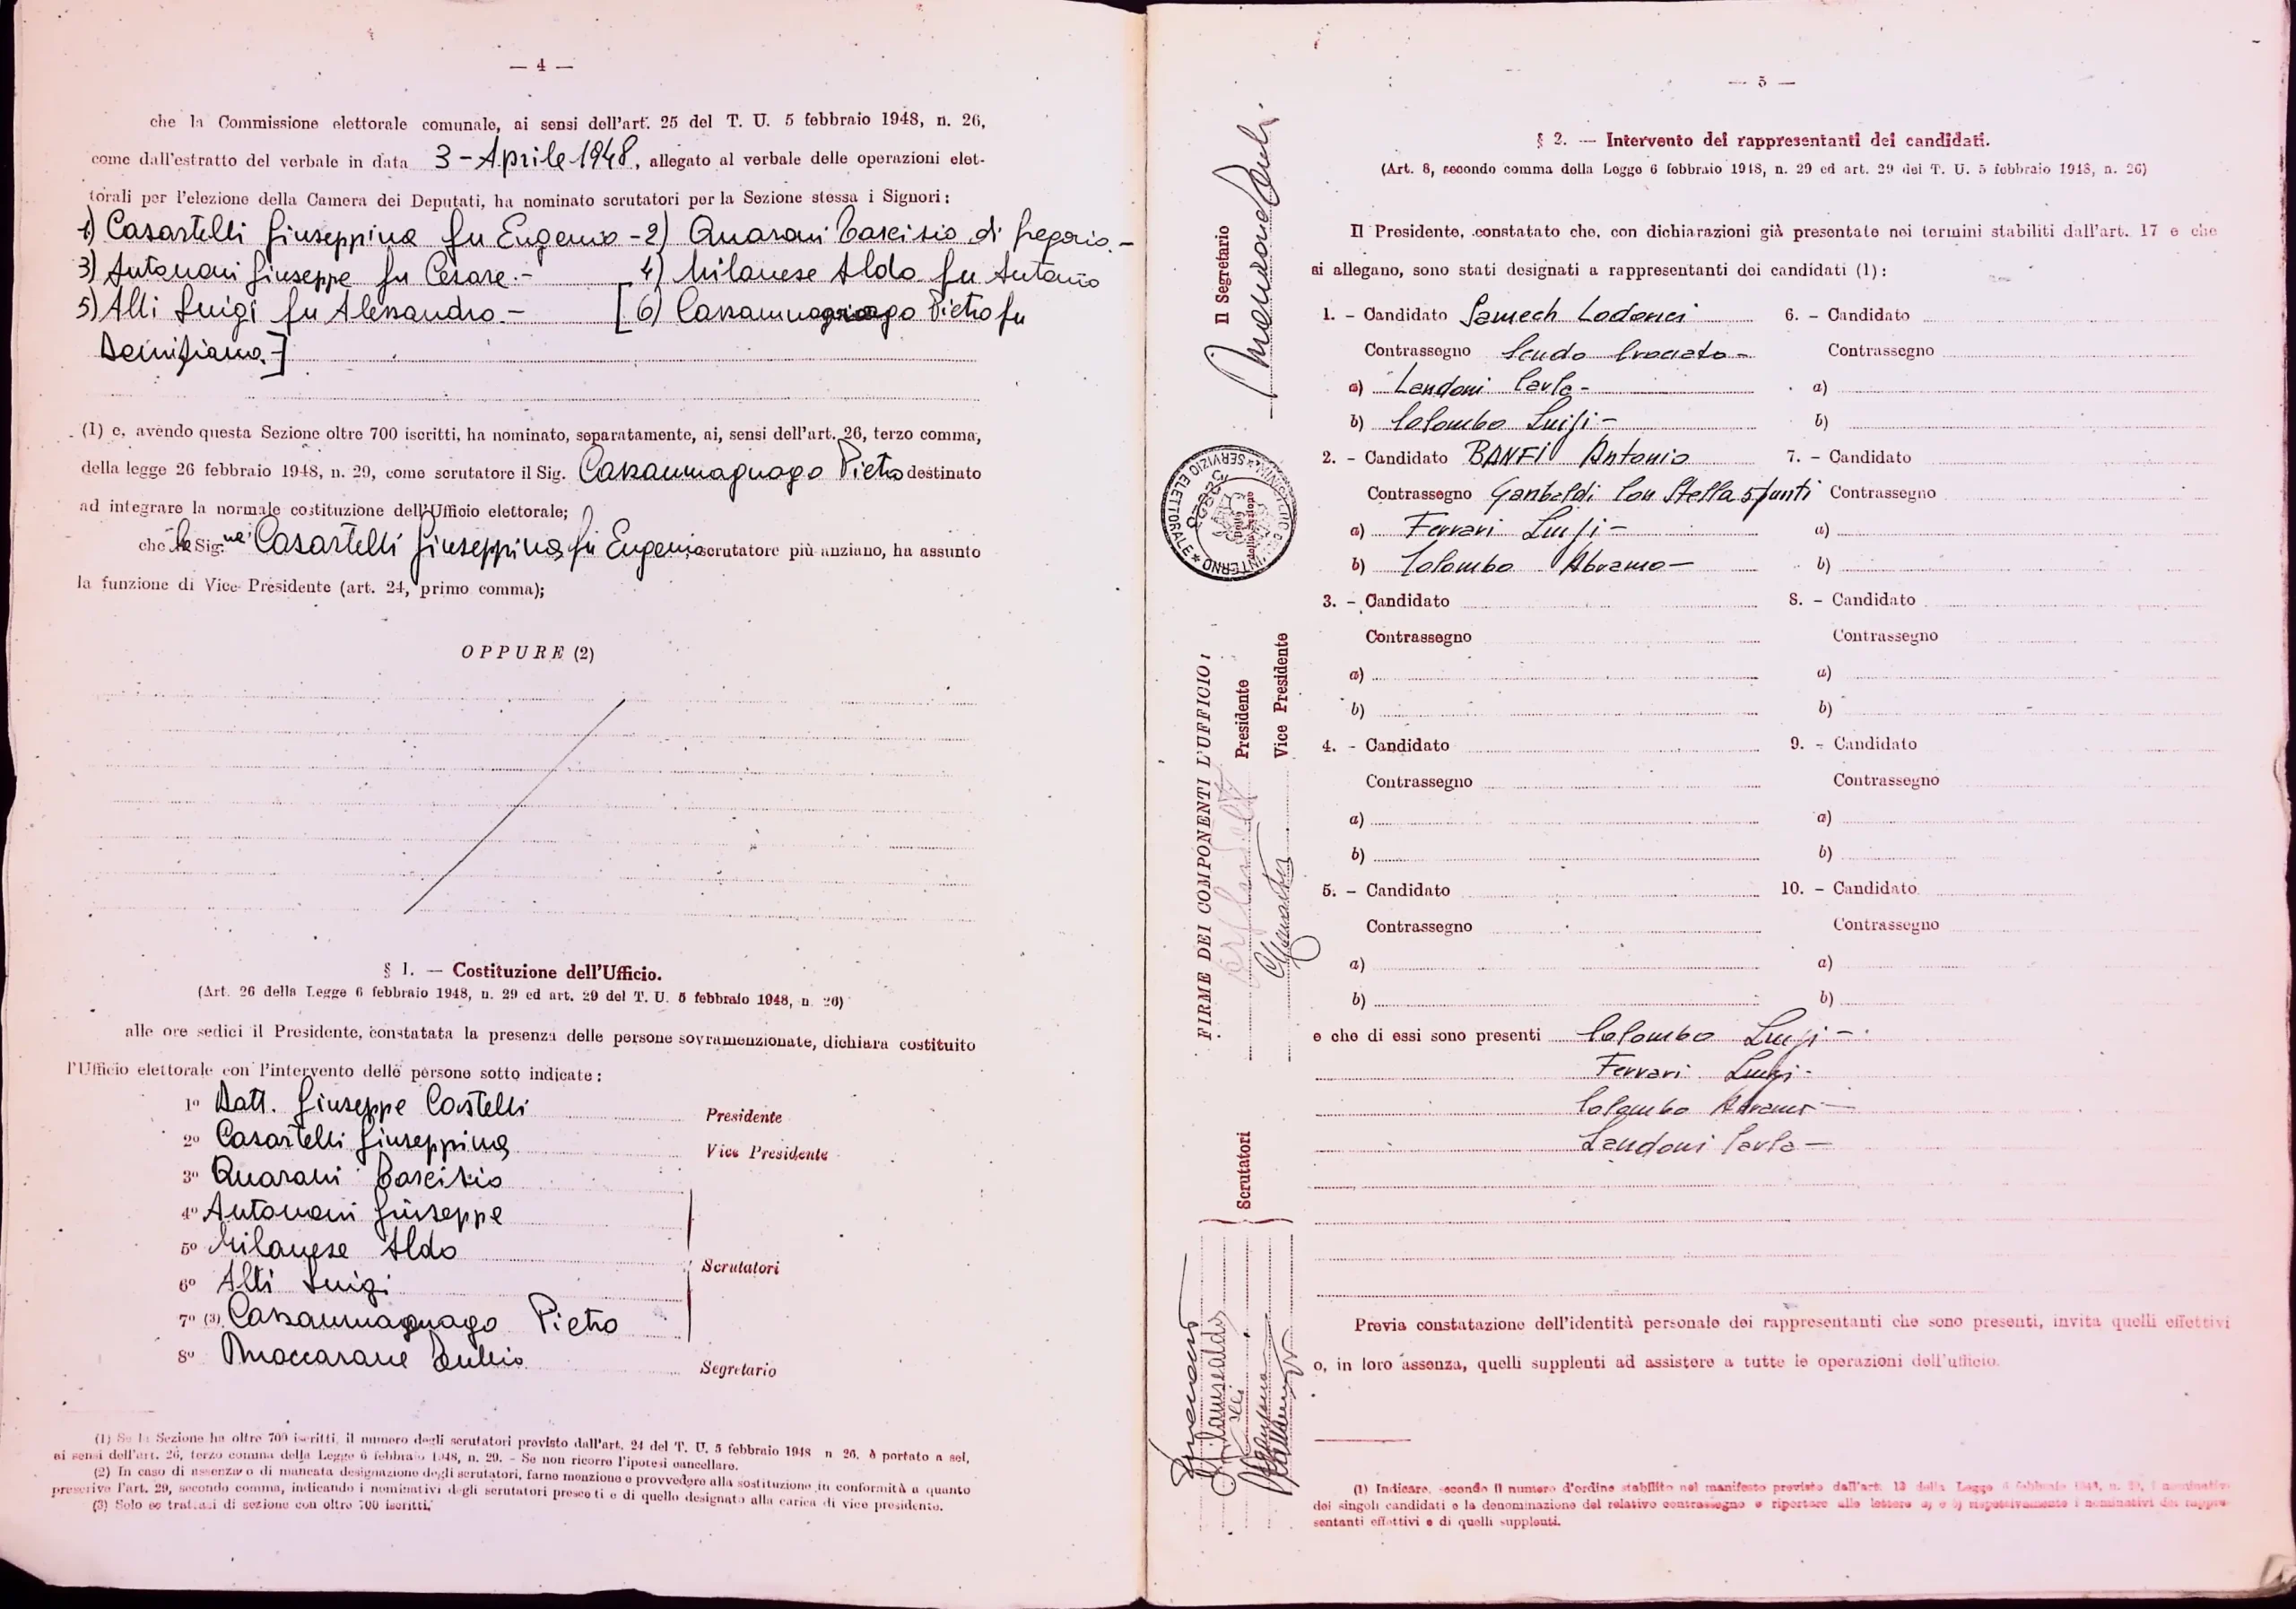 — 4 —
che la Commissione elettorale comunale, ai sensi dell'art. 25 del T. U. 5 febbraio 1948, n. 26,
come dall'estratto del verbale in data 3 - Aprile 1948, allegato al verbale delle operazioni elet-
torali per l'elezione della Camera dei Deputati, ha nominato scrutatori per la Sezione stessa i Signori:
1) Casartelli Giuseppina fu Eugenio - 2) Quarani Tarcisio di Gregorio. -
3) Antonani Giuseppe fu Cesare. - 4) Milanese Aldo fu Antonio
5) Alli Luigi fu Alessandro. - [6) Cassanmagnago Pietro fu
]
(1) e, avendo questa Sezione oltre 700 iscritti, ha nominato, separatamente, ai, sensi dell'art. 26, terzo comma,
della legge 26 febbraio 1948, n. 29, come scrutatore il Sig. Cassanmagnago Pietro destinato
ad integrare la normale costituzione dell'Ufficio elettorale;
che la Sig.na Casartelli Giuseppina fu Eugenio scrutatore più anziano, ha assunto
la funzione di Vice Presidente (art. 24, primo comma);
OPPURE (2)
§ 1. — Costituzione dell'Ufficio.
(Art. 26 della Legge 6 febbraio 1948, n. 29 ed art. 29 del T. U. 5 febbraio 1948, n. 26)
alle ore sedici il Presidente, constatata la presenza delle persone sovramenzionate, dichiara costituito
l'Ufficio elettorale con l'intervento delle persone sotto indicate:
1º Dott. Giuseppe Castelli Presidente
2º Casartelli Giuseppina Vice Presidente
3º Quarani Tarcisio
4º Antonani Giuseppe
5º Milanese Aldo
6º Alli Luigi
Scrutatori
7º (3) Cassanmagnago Pietro
8º Maccarone Duilio Segretario
(1) Se la Sezione ha oltre 700 iscritti, il numero degli scrutatori previsto dall'art. 24 del T. U. 5 febbraio 1948 n 26, è portato a sei,
ai sensi dell'art. 26, terzo comma della Legge 6 febbraio 1948, n. 29. - Se non ricorre l'ipotesi cancellare.
(2) In caso di assenza o di mancata designazione degli scrutatori, farne menzione e provvedere alla sostituzione in conformità a quanto
prescrive l'art. 29, secondo comma, indicando i nominativi degli scrutatori prescelti e di quello designato alla carica di vice presidente.
(3) Solo se trattasi di sezione con oltre 700 iscritti.
Il Segretario
SERVIZIO ELETTORALE
INTERNO
FIRME DEI COMPONENTI L'UFFICIO:
Presidente
Vice Presidente
Scrutatori
— 5 —
§ 2. — Intervento dei rappresentanti dei candidati.
(Art. 8, secondo comma della Legge 6 febbraio 1948, n. 29 ed art. 29 del T. U. 5 febbraio 1948, n. 26)
Il Presidente, constatato che, con dichiarazioni già presentate nei termini stabiliti dall'art. 17 e che
si allegano, sono stati designati a rappresentanti dei candidati (1):
1. - Candidato Samech Lodovici 6. - Candidato
Contrassegno Scudo Crociato - Contrassegno
a) Landoni Carla - a)
b) Colombo Luigi - b)
2. - Candidato BANFI Antonio 7. - Candidato
Contrassegno Garibaldi con Stella 5 punti Contrassegno
a) Ferrari Luigi - a)
b) Colombo Abramo - b)
3. - Candidato 8. - Candidato
Contrassegno Contrassegno
a) a)
b) b)
4. - Candidato 9. - Candidato
Contrassegno Contrassegno
a) a)
b) b)
5. - Candidato 10. - Candidato
Contrassegno Contrassegno
a) a)
b) b)
e che di essi sono presenti Colombo Luigi -
Ferrari Luigi -
Colombo Abramo -
Landoni Carla -
Previa constatazione dell'identità personale dei rappresentanti che sono presenti, invita quelli effettivi
o, in loro assenza, quelli supplenti ad assistere a tutte le operazioni dell'ufficio.
(1) Indicare, secondo il numero d'ordine stabilito nel manifesto previsto dall'art. 13 della Legge 6 febbraio 1948, n. 29, i nominativi
dei singoli candidati e la denominazione del relativo contrassegno e riportare alle lettere a) e b) rispettivamente i nominativi dei rappre-
sentanti effettivi e di quelli supplenti.